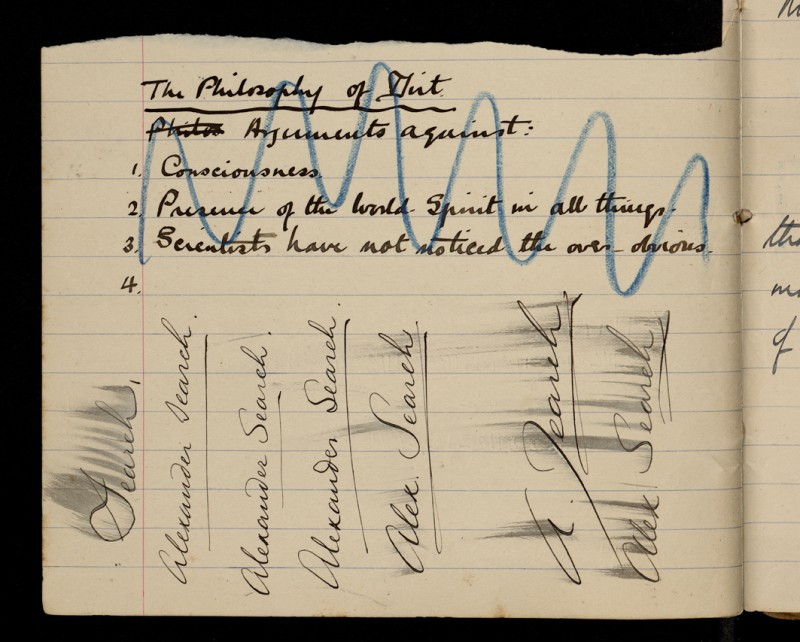 The Philosophy of Dirt.
Philos Arguments against:
1. Consciousness.
2. Presence of the World Spirit in all things.
3. Scientists have not noticed the over-obvious.
4.
Search,
Alexander Search.
Alexander Search.
Alexander Search.
Alex. Search.
A. Search.
Alex Search
of